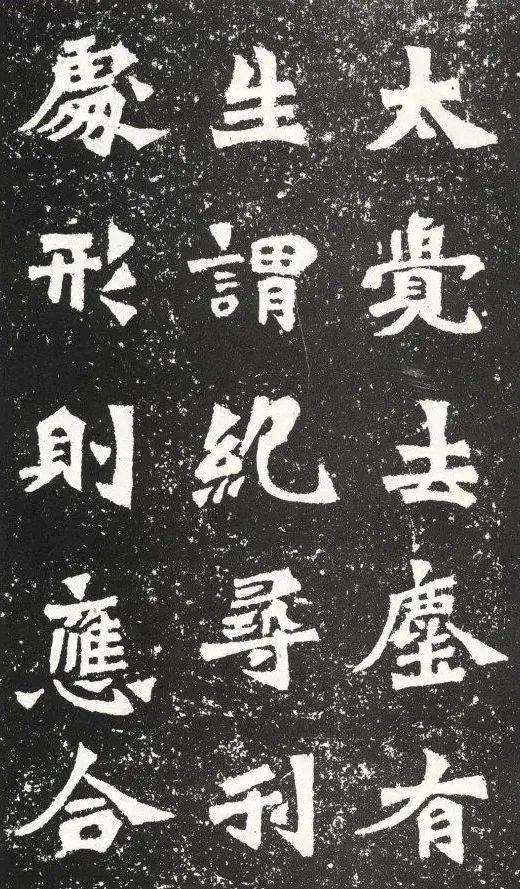 太覺去塵有
生謂紀尋刊
處形則應合